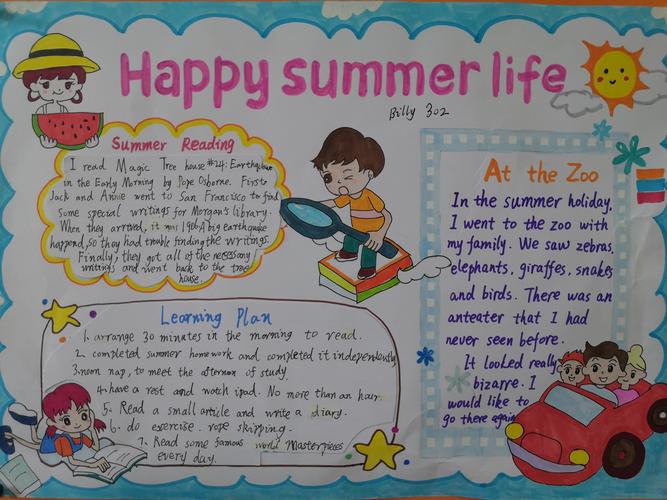 Happy summer life
Billy 302
Summer Reading
I read Magic Tree house #24: Earthquake
in the Early Morning by Pope Osborne. First,
Jack and Annie went to San Francisco to find
some special writings for Morgan's library.
When they arrived, it was 1906. A big earthquake
happend, so they had trouble finding the writings.
Finally, they got all of the necessary
writings and went back to the tree
house.
Learning Plan
1. arrange 30 minutes in the morning to read.
2. completed summer homework and completed it independently
3. noon nap, to meet the afternoon of study.
4. have a rest and watch ipad. No more than an hour.
5. Read a small article and write a diary.
6. do exercise. rope skipping.
7. Read some famous world Masterpieces
every day.
At the Zoo
In the summer holiday,
I went to the zoo with
my family. We saw zebras,
elephants, giraffes, snakes
and birds. There was an
anteater that I had
never seen before.
It looked really
bizarre. I
would like to
go there again.